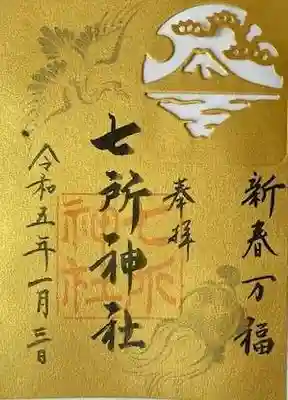 新春万福
奉拝
七所神社
七所
神社
令和五年一月三日